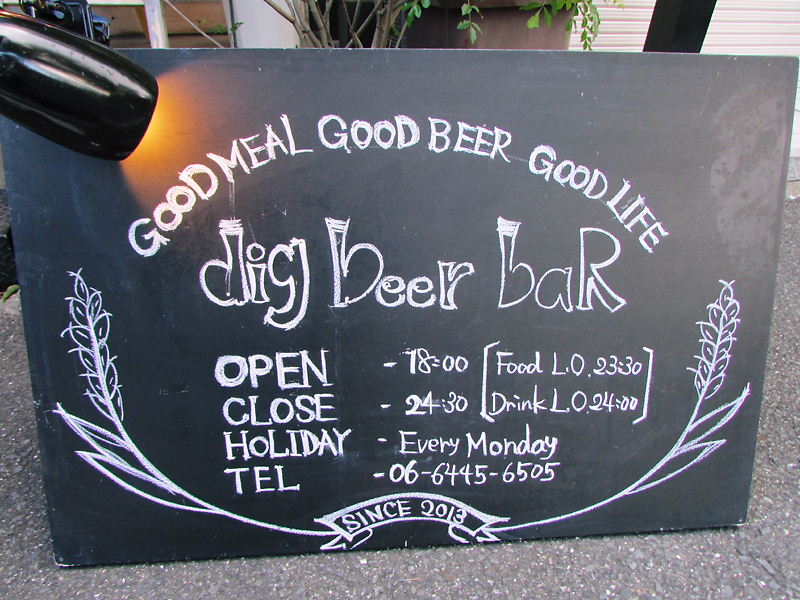 GOOD MEAL GOOD BEER GOOD LIFE
dig beer baR
OPEN - 18:00 [Food L.O. 23:30
CLOSE - 24:30 Drink L.O. 24:00]
HOLIDAY - Every Monday
TEL - 06-6445-6505
SINCE 2013